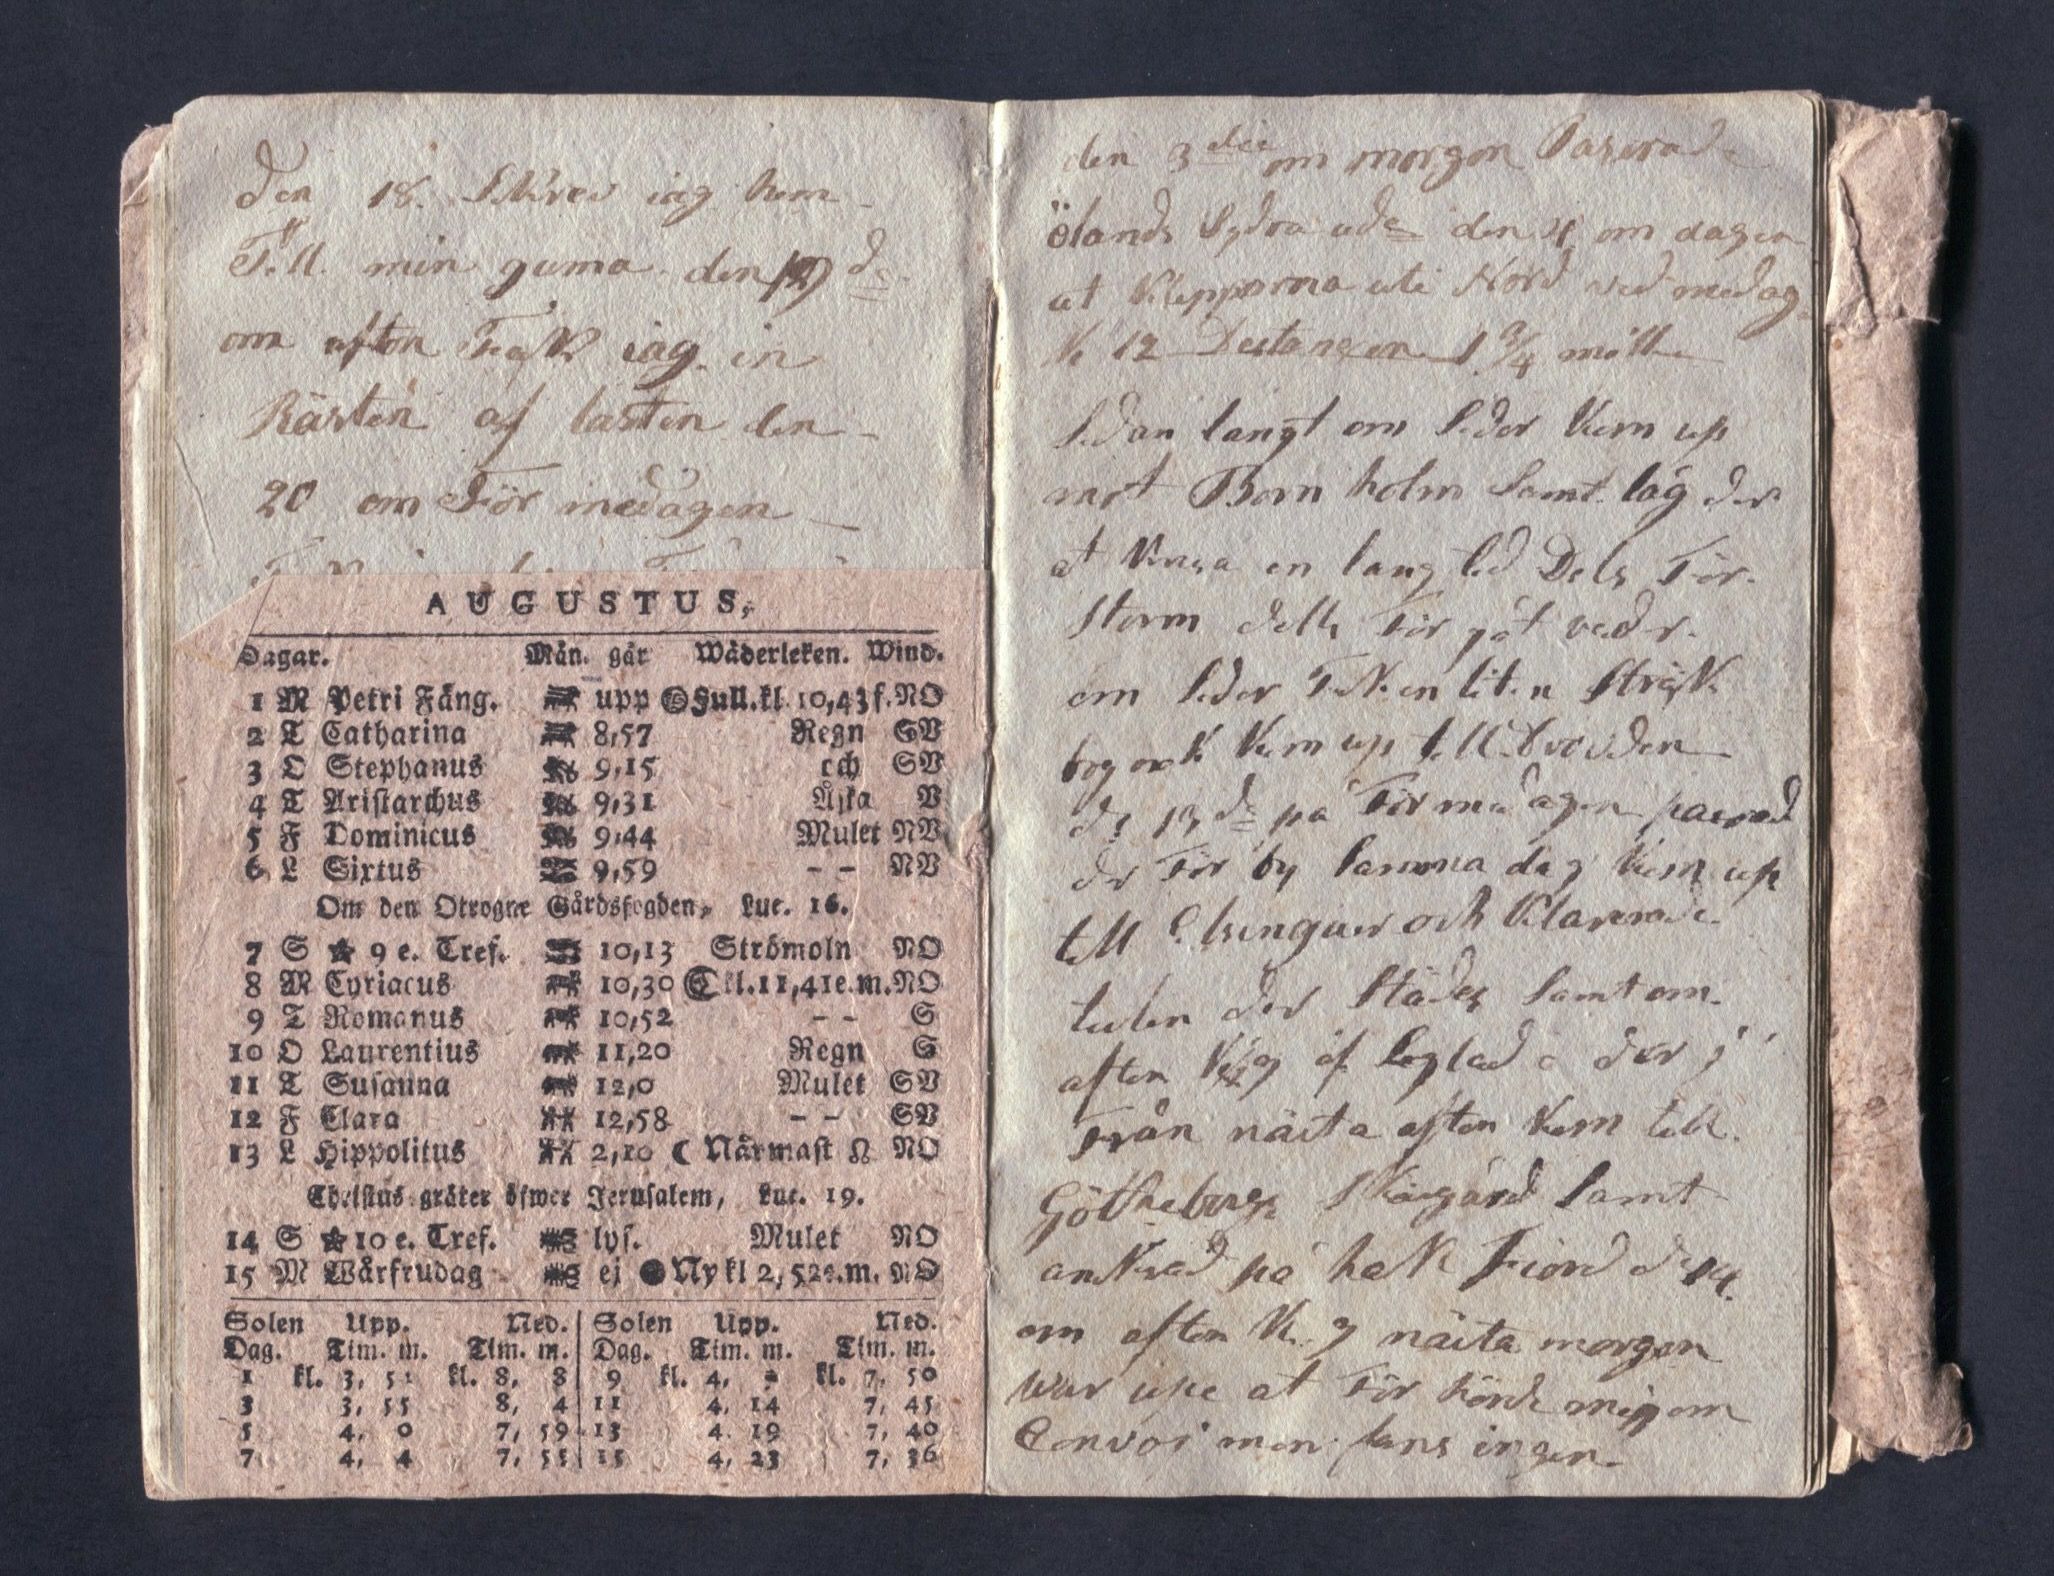 den 18. Skrev iag hem
Till min guma den 19 ds
om afton Feck iag in
Rästen af lasten den
20 om För medagen
AUGUSTUS,
Dagar. Mån. går Wäderleken. Wind.
1 M Petri Fäng. upp Full.kl. 10,43 f. NO
2 T Catharina 8,57 Regn SV
3 O Stephanus 9,15 och SV
4 T Aristarchus 9,31 Åska V
5 F Dominicus 9,44 Mulet NV
6 L Sixtus 9,59 – – NV
Om den Otrogne Gårdsfogden, Luc. 16.
7 S ★ 9 e. Tref. 10,13 Strömoln NO
8 M Cyriacus 10,30 kl.11,41e.m. NO
9 T Romanus 10,52 – – S
10 O Laurentius 11,20 Regn S
11 T Susanna 12,0 Mulet SV
12 F Clara 12,58 – – SV
13 L Hippolitus 2,10 ☾ Närmast ☊ NO
Christus gråter öfwer Jerusalem, Luc. 19.
14 S ★ 10 e. Tref. lys. Mulet NO
15 M Wårfrudag ej ● Ny kl 2, 52e.m. NO
Solen Upp. Ned. Solen Upp. Ned.
Dag. Tim. m. Tim. m. Dag. Tim. m. Tim. m.
1 kl. 3, 51 kl. 8, 8 9 kl. 4, kl. 7, 50
3 3, 55 8, 4 11 4, 14 7, 45
5 4, 0 7, 59 13 4. 19 7, 40
7 4, 4 7, 55 15 4, 23 7, 36
den 3die om morgon Paserade
Ölands Sydra ude den 4 om dagen
at Klepporna uti Nord ved medag
Kl 12 Destansen 1 3/4 mill
Sedan langt om Seder Kom up
mot Born holm Samt låg der
at Krusa en lang tid Dels För
storm dells För gåt veder.
om Seder Feck en liten Sträck
bog ock Kom up till
13 ds på För medagen paserad
der För by Samma dag Kom up
till Elsingner och Klarerade
tullen der Städes Samt om
aften af Seglade der i
Från nästa aften Kom till
Götheborgs Skärgård Samt
ankrad på hack Fiord d 14
om aften Kl. 7 nästa morgon
war upe at För hörde mig om
Convoi men fans ingen